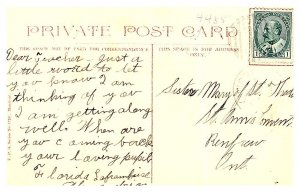 7485
PRIVATE POST CARD
THIS SPACE MAY BE USED FOR CORRESPONDENCE
THIS SPACE IS FOR ADDRESS
ONLY.
Dear Teacher Just a
little word to let
yov know I am
thinking of yov
I am getting along
well. When are
yov coming back
your loving pupil
Florida Laframboise
Sister Mary of St.
St.
Renfrew
Ont.